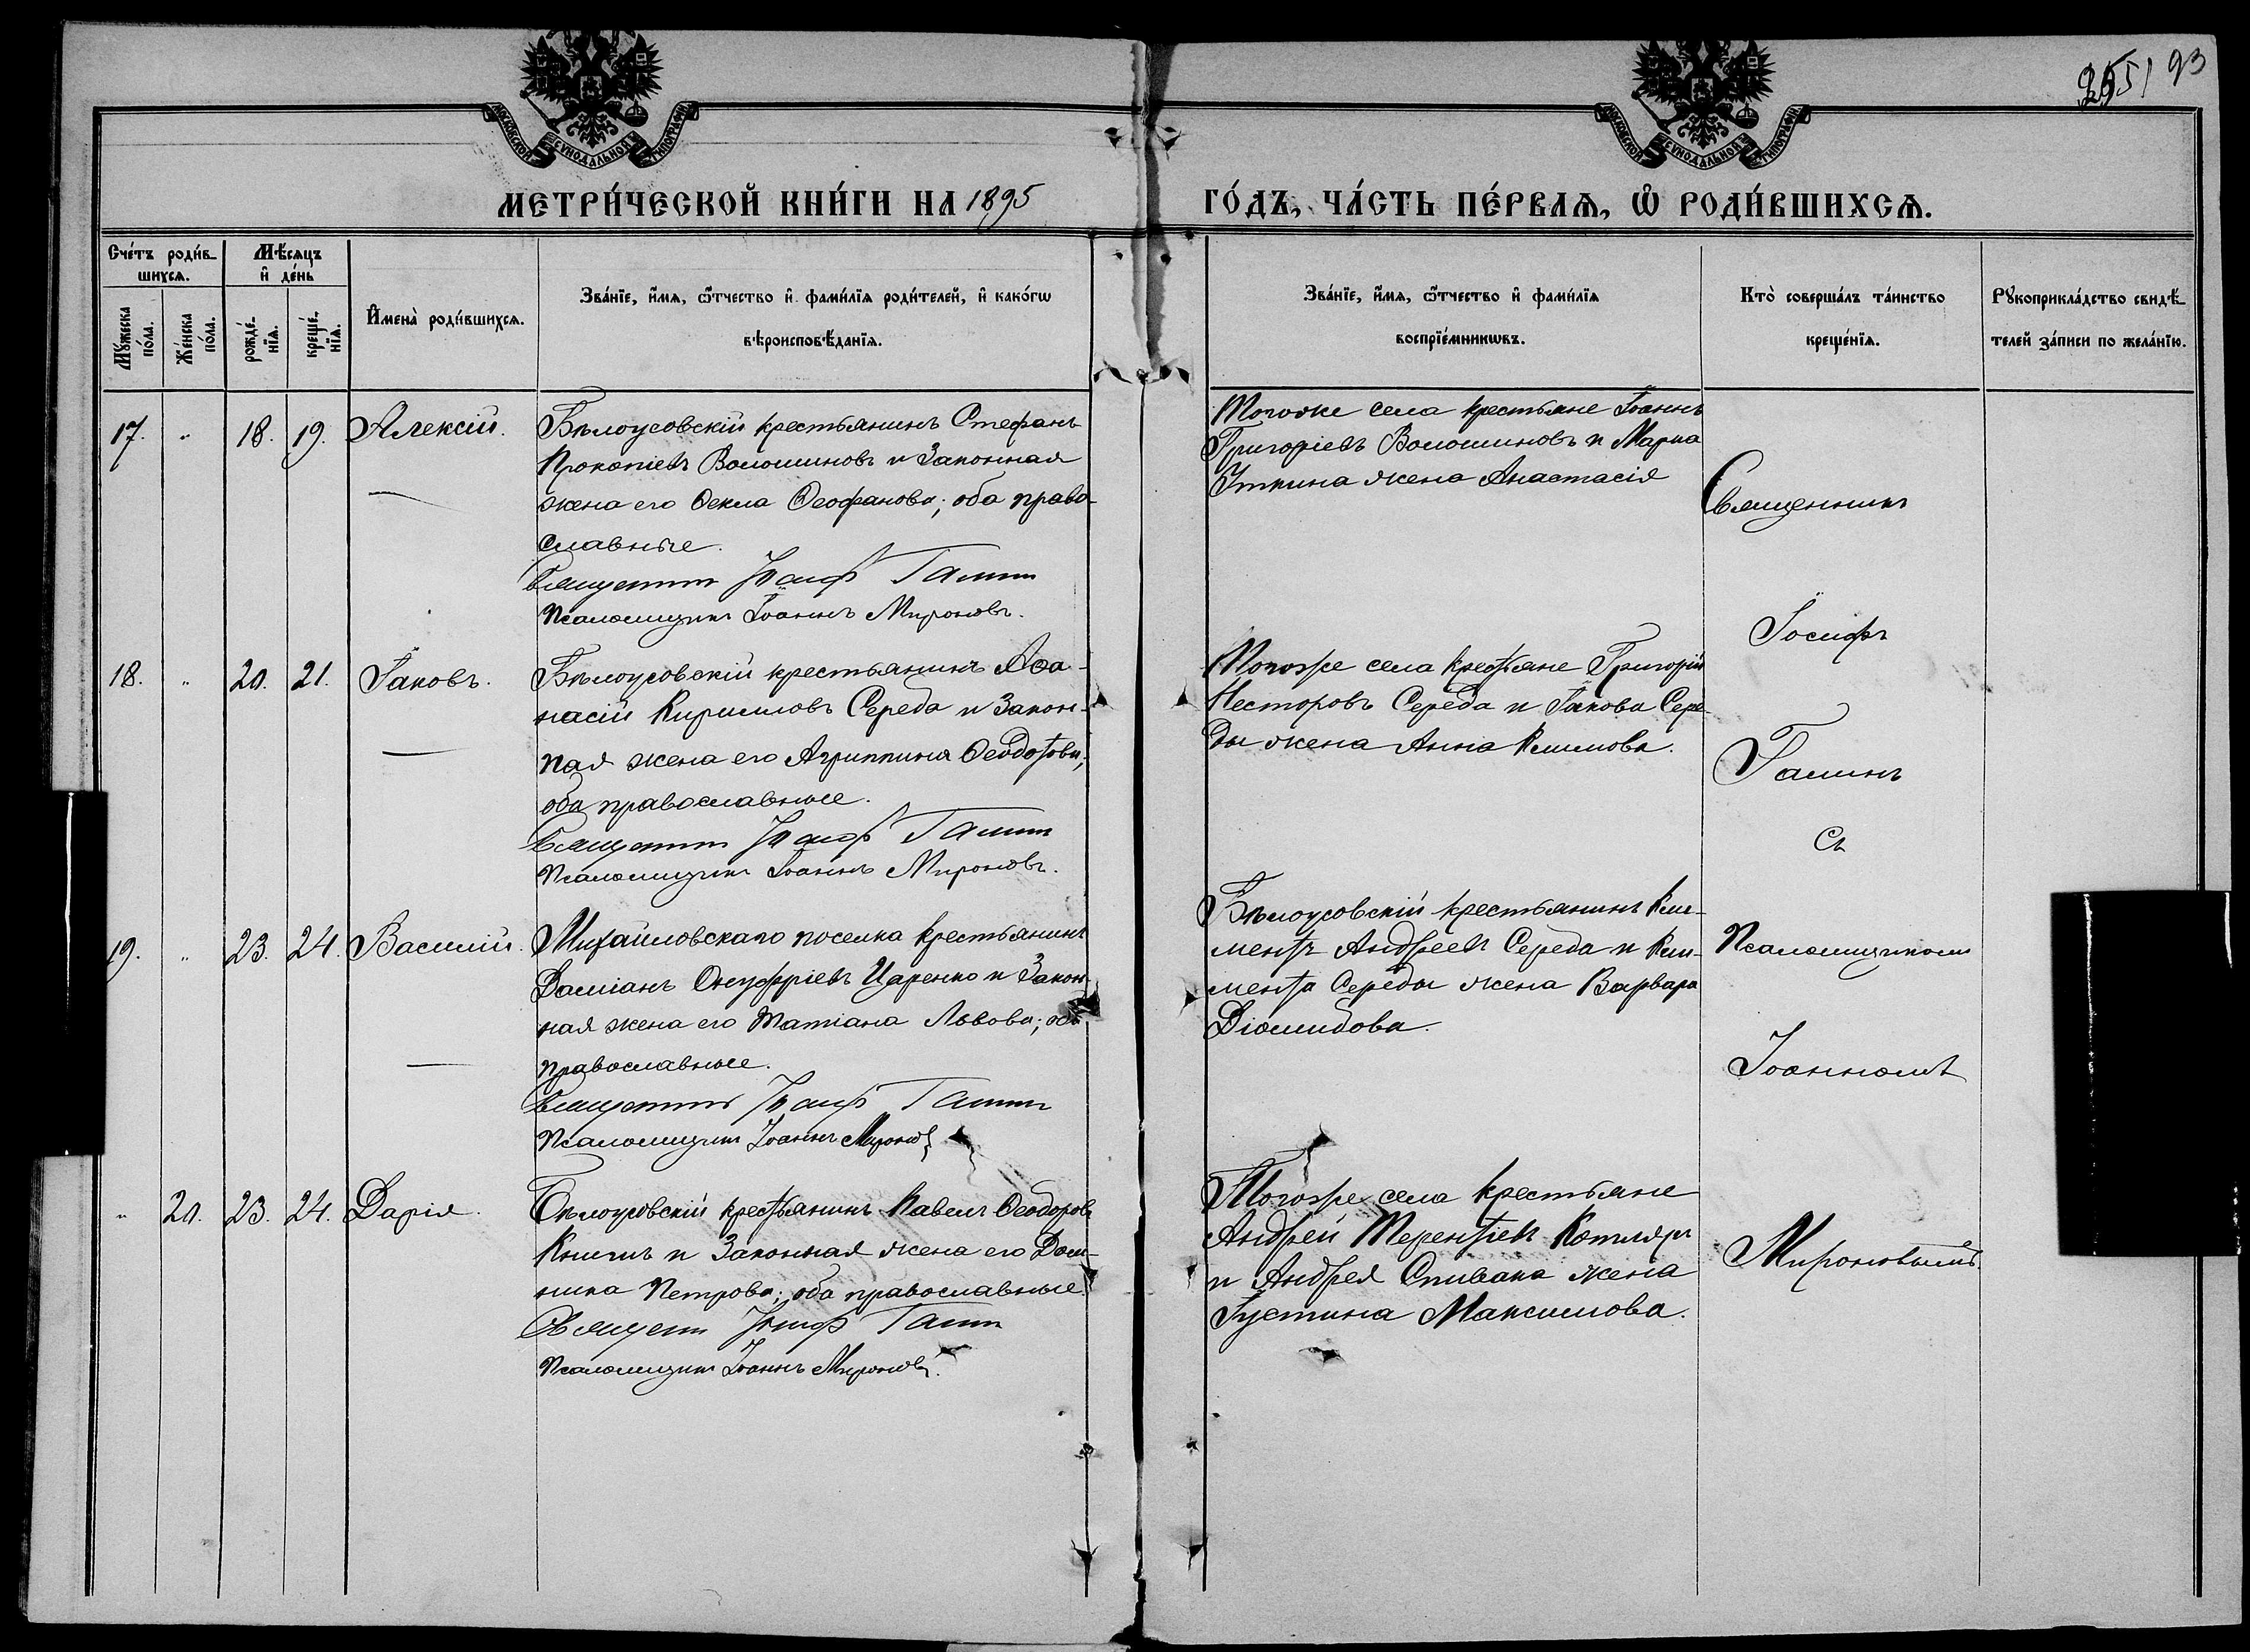 93
МОСКОВСКОЙ СѴНОДАЛЬНОЙ ТИПОГРАФІИ
МОСКОВСКОЙ СѴНОДАЛЬНОЙ ТИПОГРАФІИ
МЕТРИ́ЧЕСКОЙ КНИ́ГИ НА 1895 ГО́ДЪ, ЧА́СТЬ ПЕ́РВАѦ, Ѡ РОДИ́ВШИХСѦ.
Сче́тъ роди́в-
шихсѧ.
Мꙋ́жеска по́ла.
Же́нска по́ла.
Мѣ́сѧцъ
и҆ де́нь
рожде́-
нїѧ.
креще́-
нїѧ.
И҆мена̀ роди́вшихсѧ.
Зва́нїе, и҆́мѧ, ѻ҆́тчество и҆ фами́лїѧ роди́телей, и҆ како́гѡ
вѣроисповѣ́данїѧ.
Зва́нїе, и҆́мѧ, ѻ҆́тчество и҆ фами́лїѧ
воспрїе́мникѡвъ.
Кто̀ соверша́лъ та́инство
креще́нїѧ.
Рꙋкоприкла́дство свидѣ́-
телей за́писи по жела́нїю.
17. " 18. 19. Алексій.
Бѣлоусовскій крестьянинъ Стефанъ
Прокопіевъ Волошиновъ и законная
жена его Ѳекла Ѳеофанова; оба право-
славные.
Священникъ Іосиф Галин
Псаломщикъ Іоаннъ Мироновъ.
Того же села крестьяне Іоаннъ
Григоріевъ Волошиновъ и Марка
Уткина жена Анастасія
18. " 20. 21. Іаковъ.
Бѣлоусовскій крестьянинъ Аѳа-
насій Кирилловъ Середа и закон-
ная жена его Агриппина Ѳеодотова;
оба православные.
Священникъ Іосиф Галин
Псаломщикъ Іоаннъ Мироновъ.
Того же села крестьяне Григорій
Несторовъ Середа и Іакова Сере-
ды жена Анна Климова.
19. " 23. 24. Василій.
Михайловскаго поселка крестьянинъ
Даміанъ Онуфріевъ Царенко и закон-
ная жена его Татіана Львова; оба
православные.
Священникъ Іосиф Галин
Псаломщикъ Іоаннъ Мироновъ
Бѣлоусовскій крестьянинъ Кли-
ментъ Андреевъ Середа и Кли-
мента Середы жена Варвара
Діомидова.
" 20. 23. 24. Дарія.
Бѣлоусовскій крестьянинъ Павелъ Ѳеодоровъ
Книгинъ и законная жена его Дом-
ника Петрова; оба православные.
Священн Іосиф Галин
Псаломщикъ Іоаннъ Мироновъ.
Того же села крестьяне
Андрей Терентіевъ Котляръ
и Андрея Спивака жена
Іустина Максимова.
Священникъ
Іосифъ
Галинъ
съ
Псаломщикомъ
Іоанномъ
Мироновымъ.